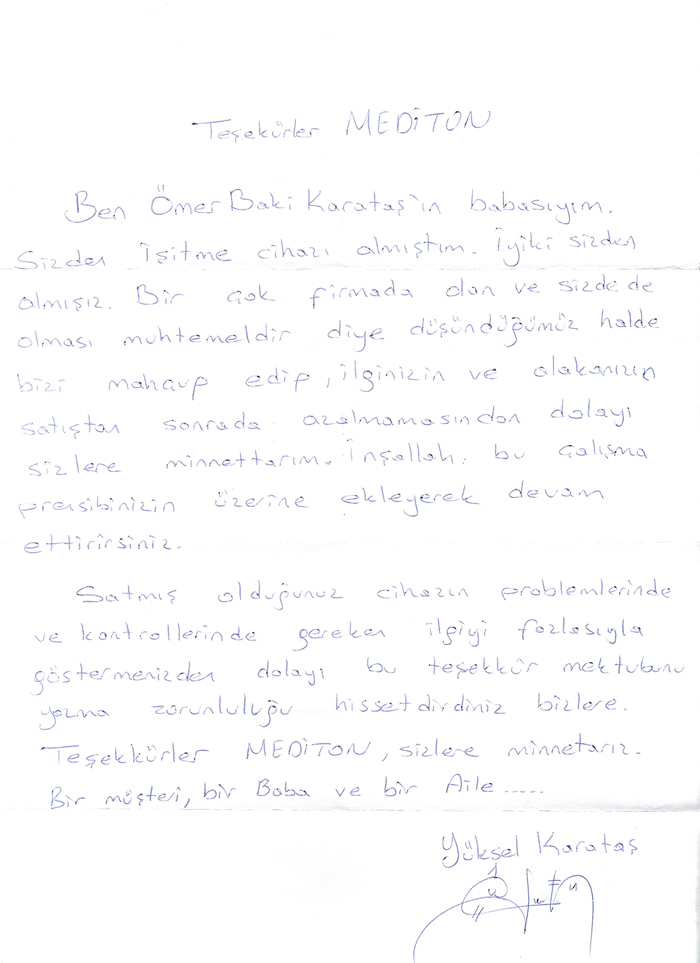 Teşekürler MEDİTON
Ben Ömer Baki Karataş'ın babasıyım.
Sizden İşitme cihazı almıştım. İyiki sizden
almışız. Bir çok firmada olan ve sizde de
olması muhtemeldir diye düşündüğümüz halde
bizi mahcup edip, ilginizin ve alakanızın
satıştan sonrada azalmamasından dolayı
sizlere minnettarım. İnşallah. bu çalışma
prensibinizin üzerine ekleyerek devam
ettirirsiniz.
Satmış olduğunuz cihazın problemlerinde
ve kontrollerinde gereken ilgiyi fazlasıyla
göstermenizden dolayı bu teşekkür mektubunu
yazma zorunluluğu hissetdirdiniz bizlere.
Teşekkürler MEDİTON, sizlere minnetarız.
Bir müşteri, bir Baba ve bir Aile.....
Yüksel Karataş